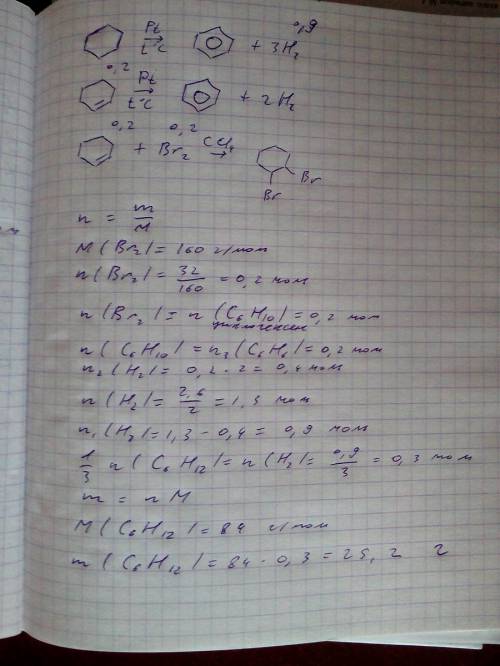 Pt t°C + 3H₂ 0,9
0,2 Pt t°C + 2H₂
0,2 + Br₂ 0,2 CCl₄ → Br Br
n = m/M
M(Br₂) = 160 г/моль
n(Br₂) = 32/160 = 0,2 моль
n(Br₂) = n(C₆H₁₀) = 0,2 моль
циклогексен
n(C₆H₁₀) = n₂(C₆H₆) = 0,2 моль
n₂(H₂) = 0,2 · 2 = 0,4 моль
n(H₂) = 2,6/2 = 1,3 моль
n₁(H₂) = 1,3 - 0,4 = 0,9 моль
1/3 n(C₆H₁₂) = n(H₂) = 0,9/3 = 0,3 моль
m = nM
M(C₆H₁₂) = 84 г/моль
m(C₆H₁₂) = 84 · 0,3 = 25,2 г